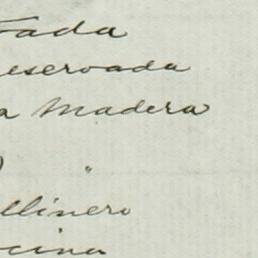 rada
eservada
a Madera
)
"
llinero
cina